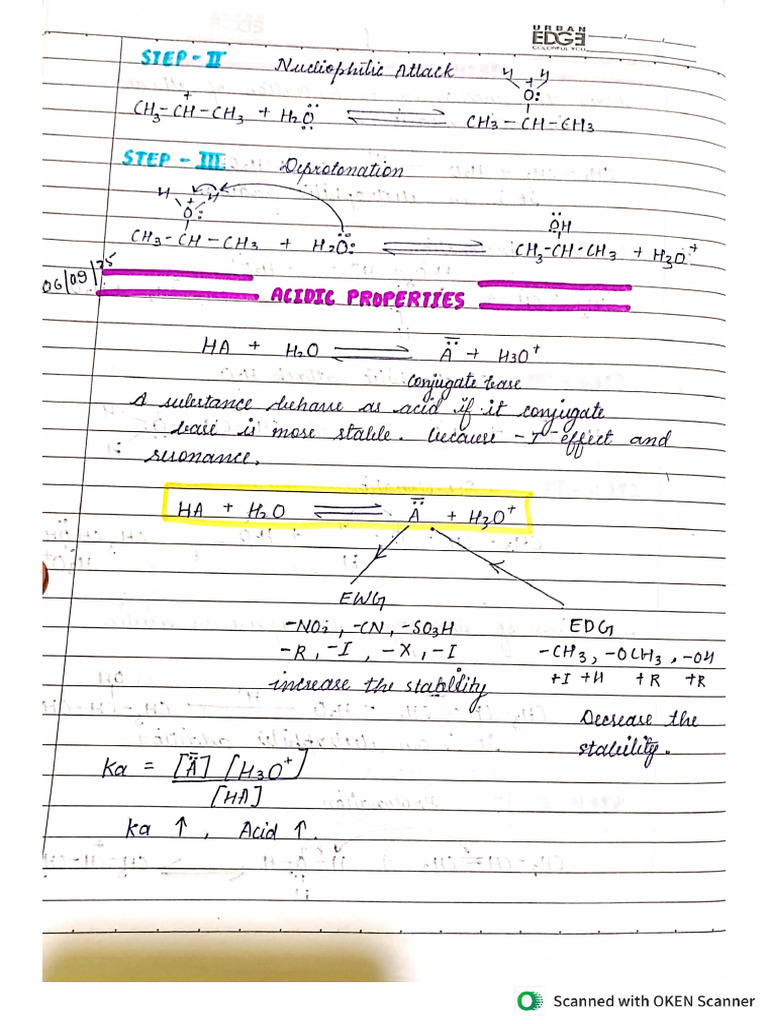 URBAN
EDGE
COLORFUL YOU
STEP - II Nucliophilic Attack
H H
+
Ö:
+
CH3-CH-CH3 + H2Ö ⇌ CH3-CH-CH3
STEP - III Deprotonation
H H
+
Ö:
ÖH
CH3-CH-CH3 + H2Ö: ⇌ CH3-CH-CH3 + H3O+
06/09/25
ACIDIC PROPERTIES
HA + H2O ⇌ Ā + H3O+
conjugate base
A substance behave as acid if it conjugate
base is more stable. because -I effect and
resonance.
HA + H2O ⇌ Ā + H3O+
EWG
-NO2, -CN, -SO3H
-R, -I, -X, -I
increase the stability
EDG
-CH3, -OCH3, -OH
+I +H +R +R
Decrease the
stability.
Ka = [Ā] [H3O+]
[HA]
Ka ↑, Acid ↑.
Scanned with OKEN Scanner